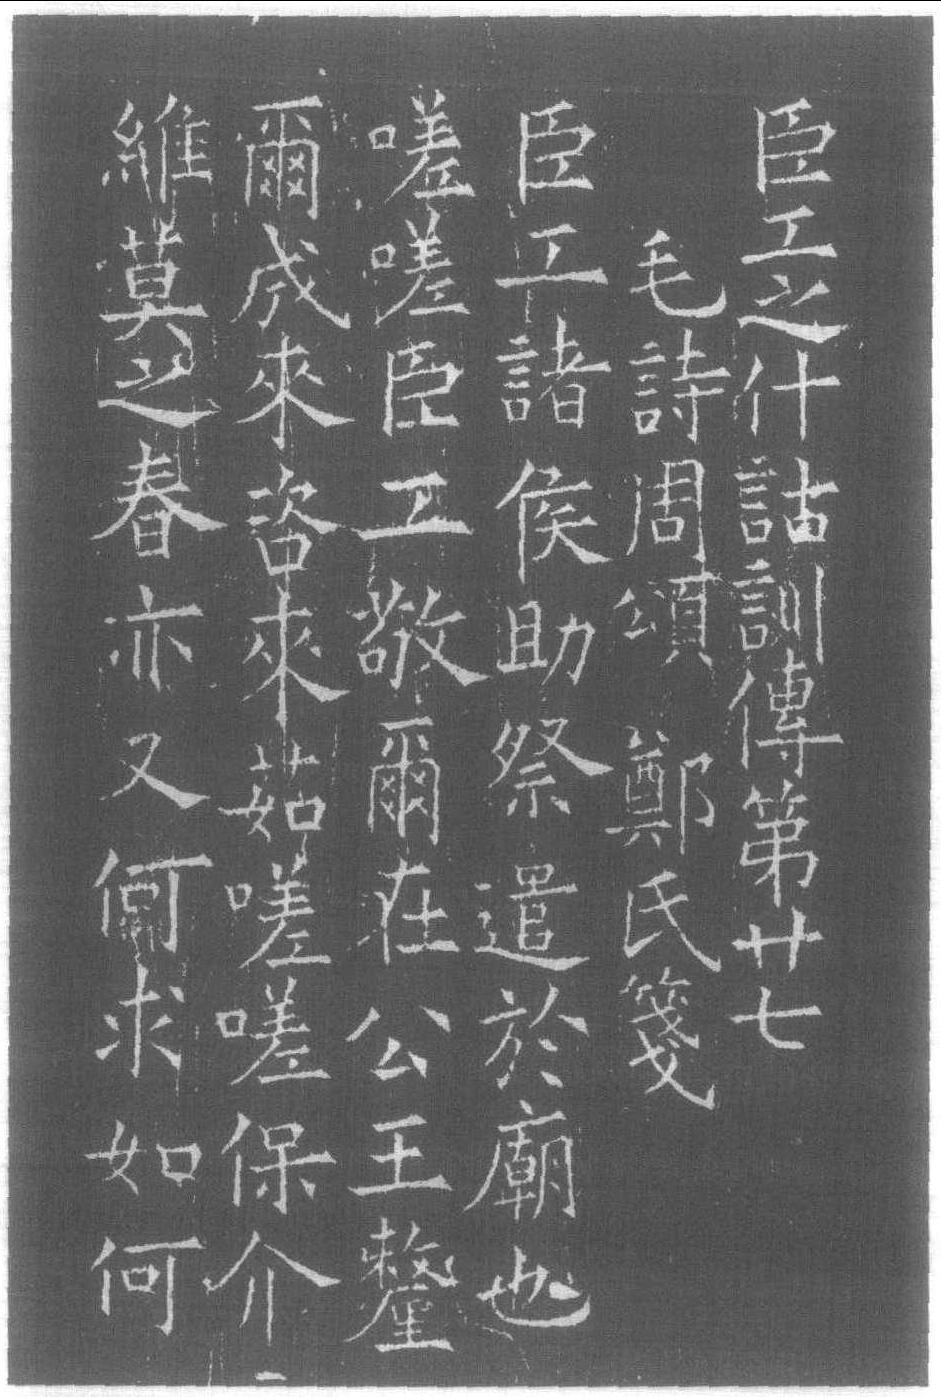 臣工之什詁訓傳第廿七
毛詩周頌 鄭氏箋
臣工諸侯助祭遣於廟也
嗟嗟臣工敬爾在公王釐
爾成來咨來茹嗟嗟保介
維莫之春亦又何求如何